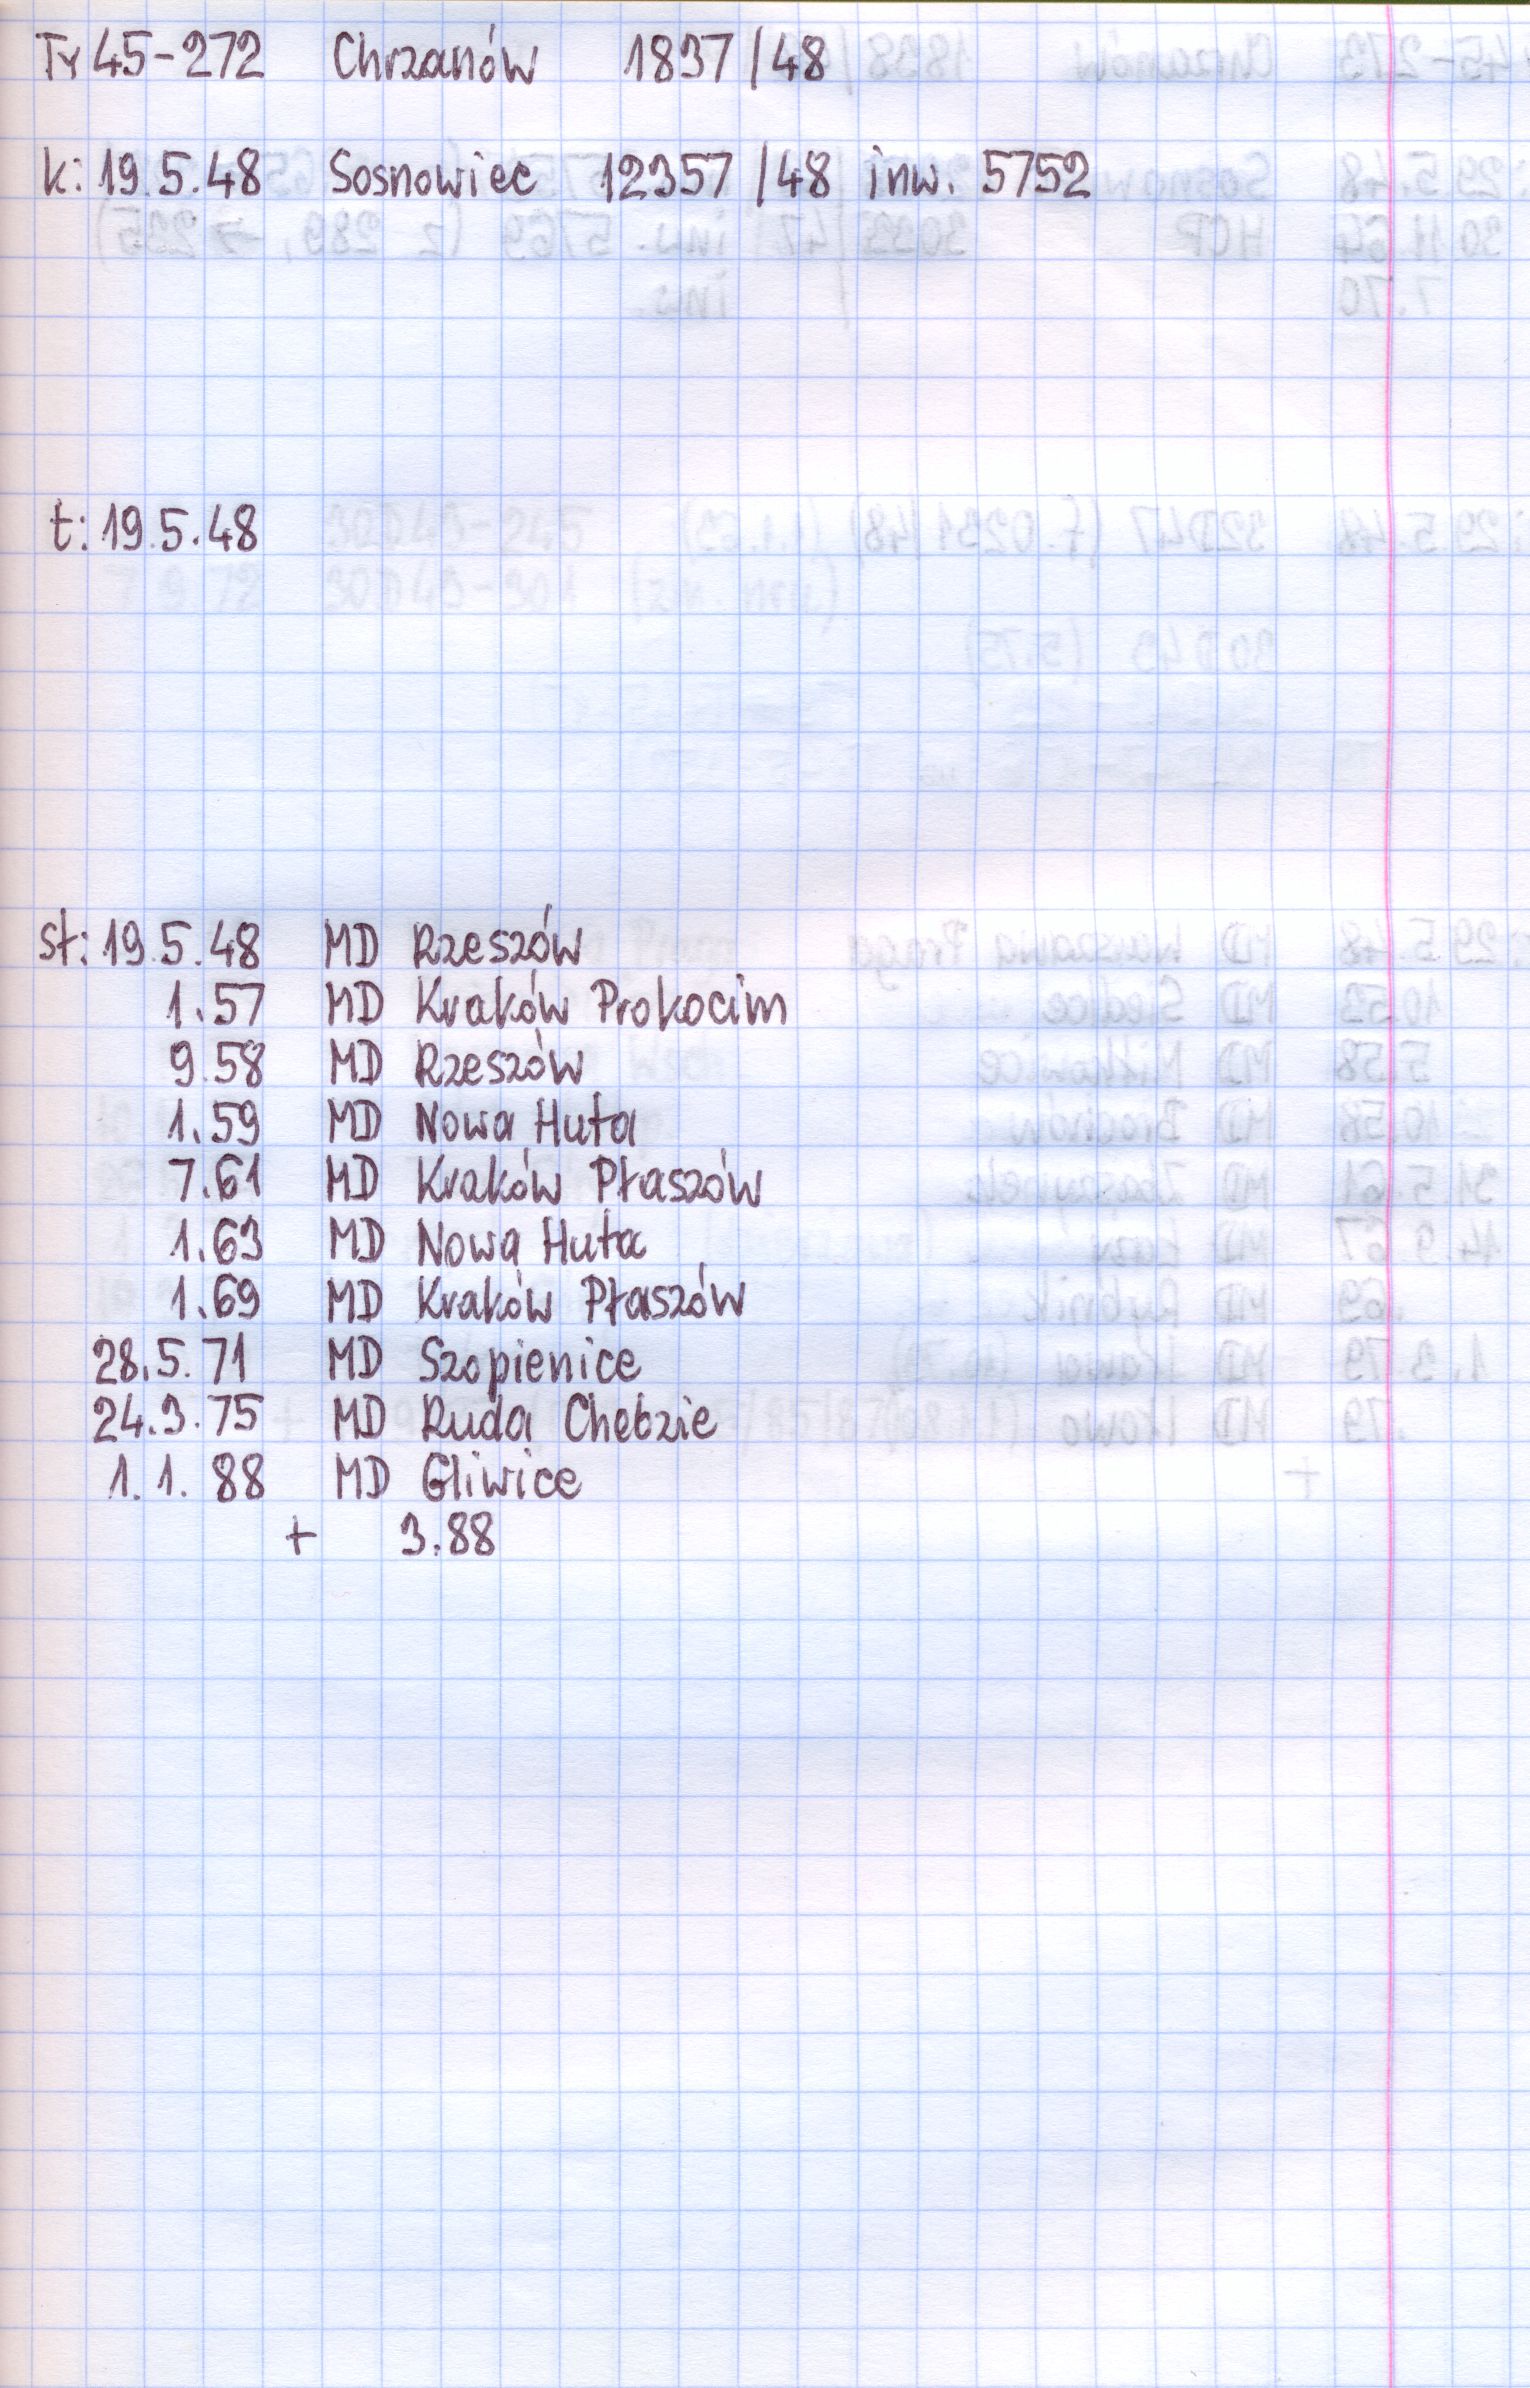 Ty45-272 Chrzanów 1837/48
k: 19.5.48 Sosnowiec 12357/48 inw. 5752
t: 19.5.48
st: 19.5.48 MD Rzeszów
1.57 MD Kraków Prokocim
9.58 MD Rzeszów
1.59 MD Nowa Huta
7.61 MD Kraków Płaszów
1.63 MD Nowa Huta
1.69 MD Kraków Płaszów
28.5.71 MD Szopienice
24.3.75 MD Ruda Chebzie
1.1.88 MD Gliwice
+ 3.88